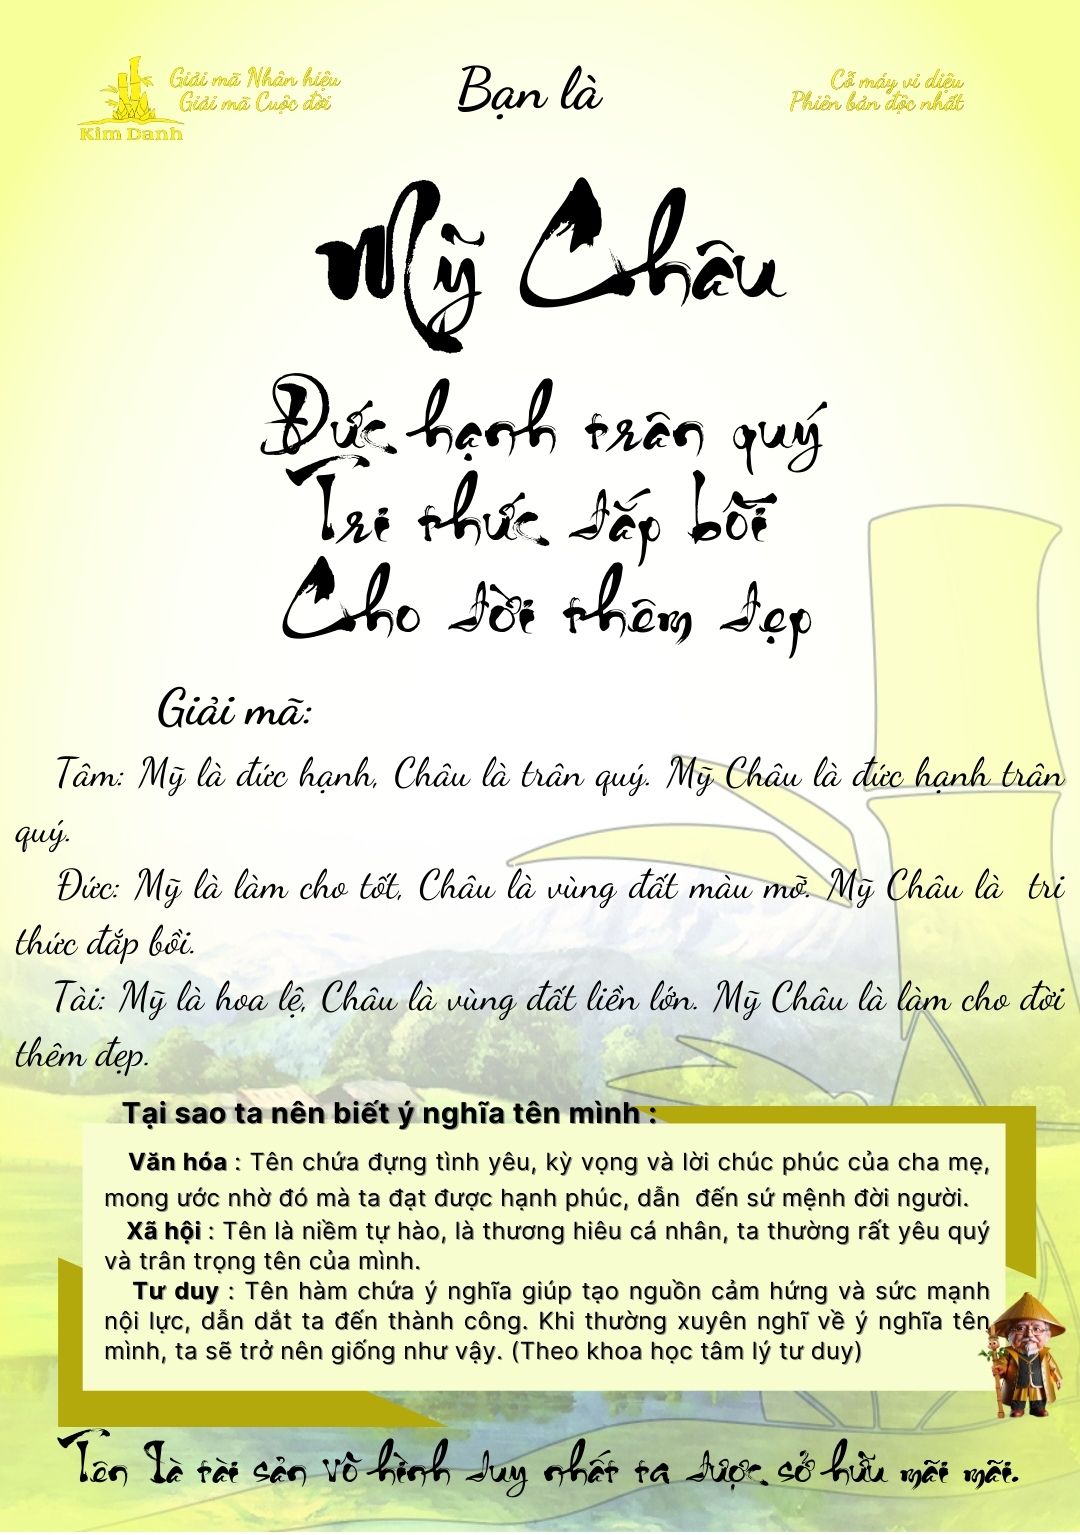 Giải mã Nhân hiệu
Giải mã Cuộc đời
Kim Danh
Bạn là
Cỗ máy vi diệu
Phiên bản độc nhất
Mỹ Châu
Đức hạnh trân quý
Tri thức đắp bồi
Cho đời thêm đẹp
Giải mã:
Tâm: Mỹ là đức hạnh, Châu là trân quý. Mỹ Châu là đức hạnh trân
quý.
Đức: Mỹ là làm cho tốt, Châu là vùng đất màu mỡ. Mỹ Châu là tri
thức đắp bồi.
Tài: Mỹ là hoa lệ, Châu là vùng đất liền lớn. Mỹ Châu là làm cho đời
thêm đẹp.
Tại sao ta nên biết ý nghĩa tên mình :
Văn hóa : Tên chứa đựng tình yêu, kỳ vọng và lời chúc phúc của cha mẹ,
mong ước nhờ đó mà ta đạt được hạnh phúc, dẫn đến sứ mệnh đời người.
Xã hội : Tên là niềm tự hào, là thương hiêu cá nhân, ta thường rất yêu quý
và trân trọng tên của mình.
Tư duy : Tên hàm chứa ý nghĩa giúp tạo nguồn cảm hứng và sức mạnh
nội lực, dẫn dắt ta đến thành công. Khi thường xuyên nghĩ về ý nghĩa tên
mình, ta sẽ trở nên giống như vậy. (Theo khoa học tâm lý tư duy)
Tên là tài sản vô hình duy nhất ta được sở hữu mãi mãi.